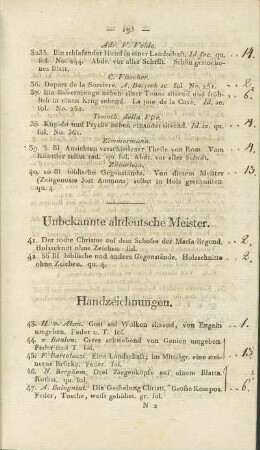 — 193 —
Adr. V. Velde.
3235. Ein schlafender Hund in einer Landschaft. Id. sc. qu.
fol. No. 244. Abdr. vor aller Schrift. Schön gestochenes
Blatt.
14.
C. Visscher.
36. Depart de la Sorciere. A. Bartsch sc. fol. No. 251.
2.
37. Ein Bauernjunge neben einer Tonne sitzend und fröhlich
in einen Krug sehend. La joie de la Cave. Id. sc.
fol. No. 262.
6.
Timoth. della Vite.
38. Kupido und Psyche neben einander sitzend. Id. sc. qu.
fol. No. 362.
4.
Zimmermann.
39. 3 Bl. Ansichten verschiedener Theile von Rom. Vom
Künstler selbst rad. qu. fol. Abdr. vor aller Schrift.
4.
40. 20 Bl. biblische Gegenstände. Von diesem Meister
(Zeitgenosse Jost Ammans) selbst in Holz geschnitten.
qu. 4.
13.
Unbekannte altdeutsche Meister.
41. Der todte Christus auf dem Schofse der Maria liegend.
Holzschnitt ohne Zeichen. fol.
2.
42. 56 Bl. biblische und andere Gegenstände. Holzschnitte
ohne Zeichen. qu. 4.
2.
Handzeichnungen.
43. H. v. Aken. Gott auf Wolken sitzend, von Engeln
umgeben. Feder u. T. fol.
1.
44. v. Baalen. Ceres schwebend von Genien umgeben.
Feder und T. fol.
45. F. Bartolozzi. Eine Landschaft; im Mittelgr. eine steinerne
Brücke. Feder. fol.
13.
46. N. Berghem. Drei Ziegenköpfe auf einem Blatte.
Rothst. qu. fol.
47. A. Bolognini. Die Geifselung Christi. Grofse Kompos.
Feder, Tusche, weifs gehöhet. gr. fol.
6.
N 2